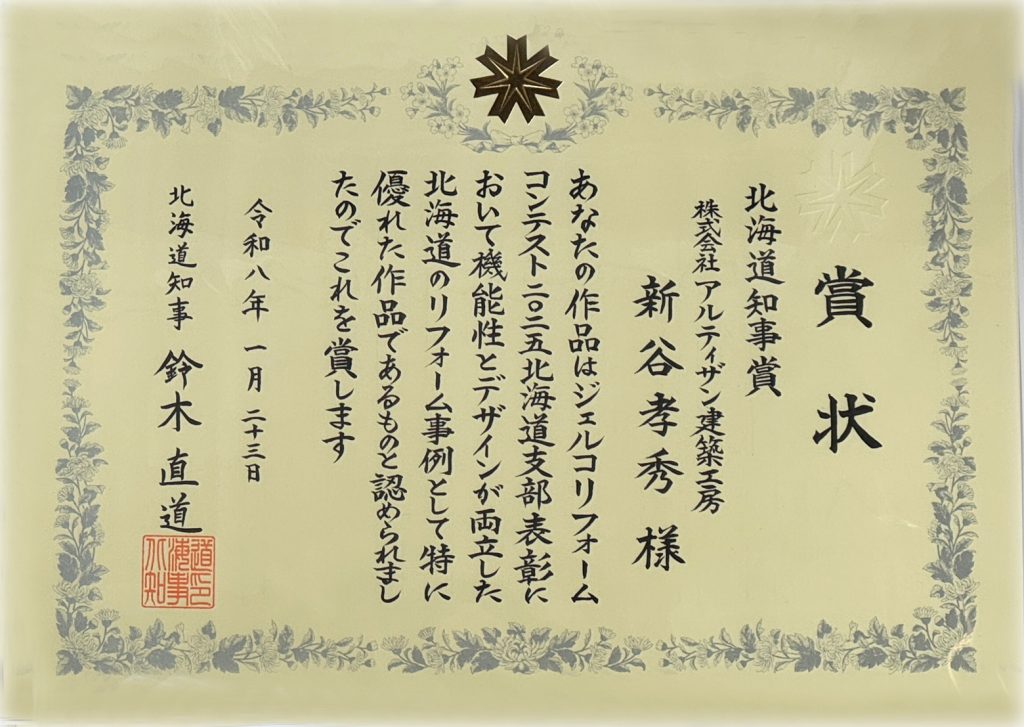 賞状
北海道知事賞
株式会社 アルティザン建築工房
新谷孝秀 様
あなたの作品はジェルコリフォーム
コンテスト二〇二五北海道支部表彰に
おいて機能性とデザインが両立した
北海道のリフォーム事例として特に
優れた作品であるものと認められまし
たのでこれを賞します
令和八年 一月 二十三日
北海道知事 鈴木 直道